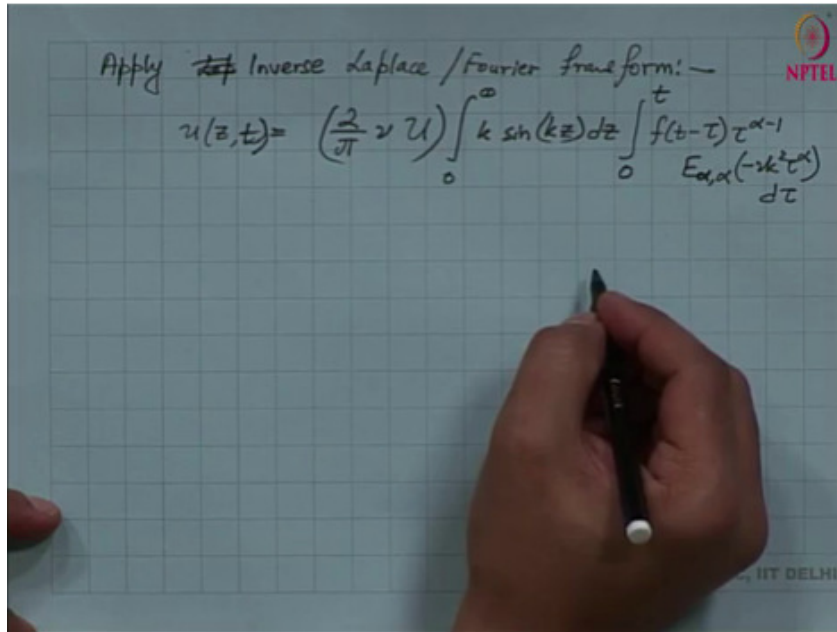 Apply Inverse Laplace / Fourier transform:—
NPTEL
u(z,t) = (2/π ν U) ∫₀^∞ k sin(kz) dz ∫₀^t f(t-τ) τ^(α-1)
E_α,α(-νk²τ^α)
dτ
C, IIT DELHI